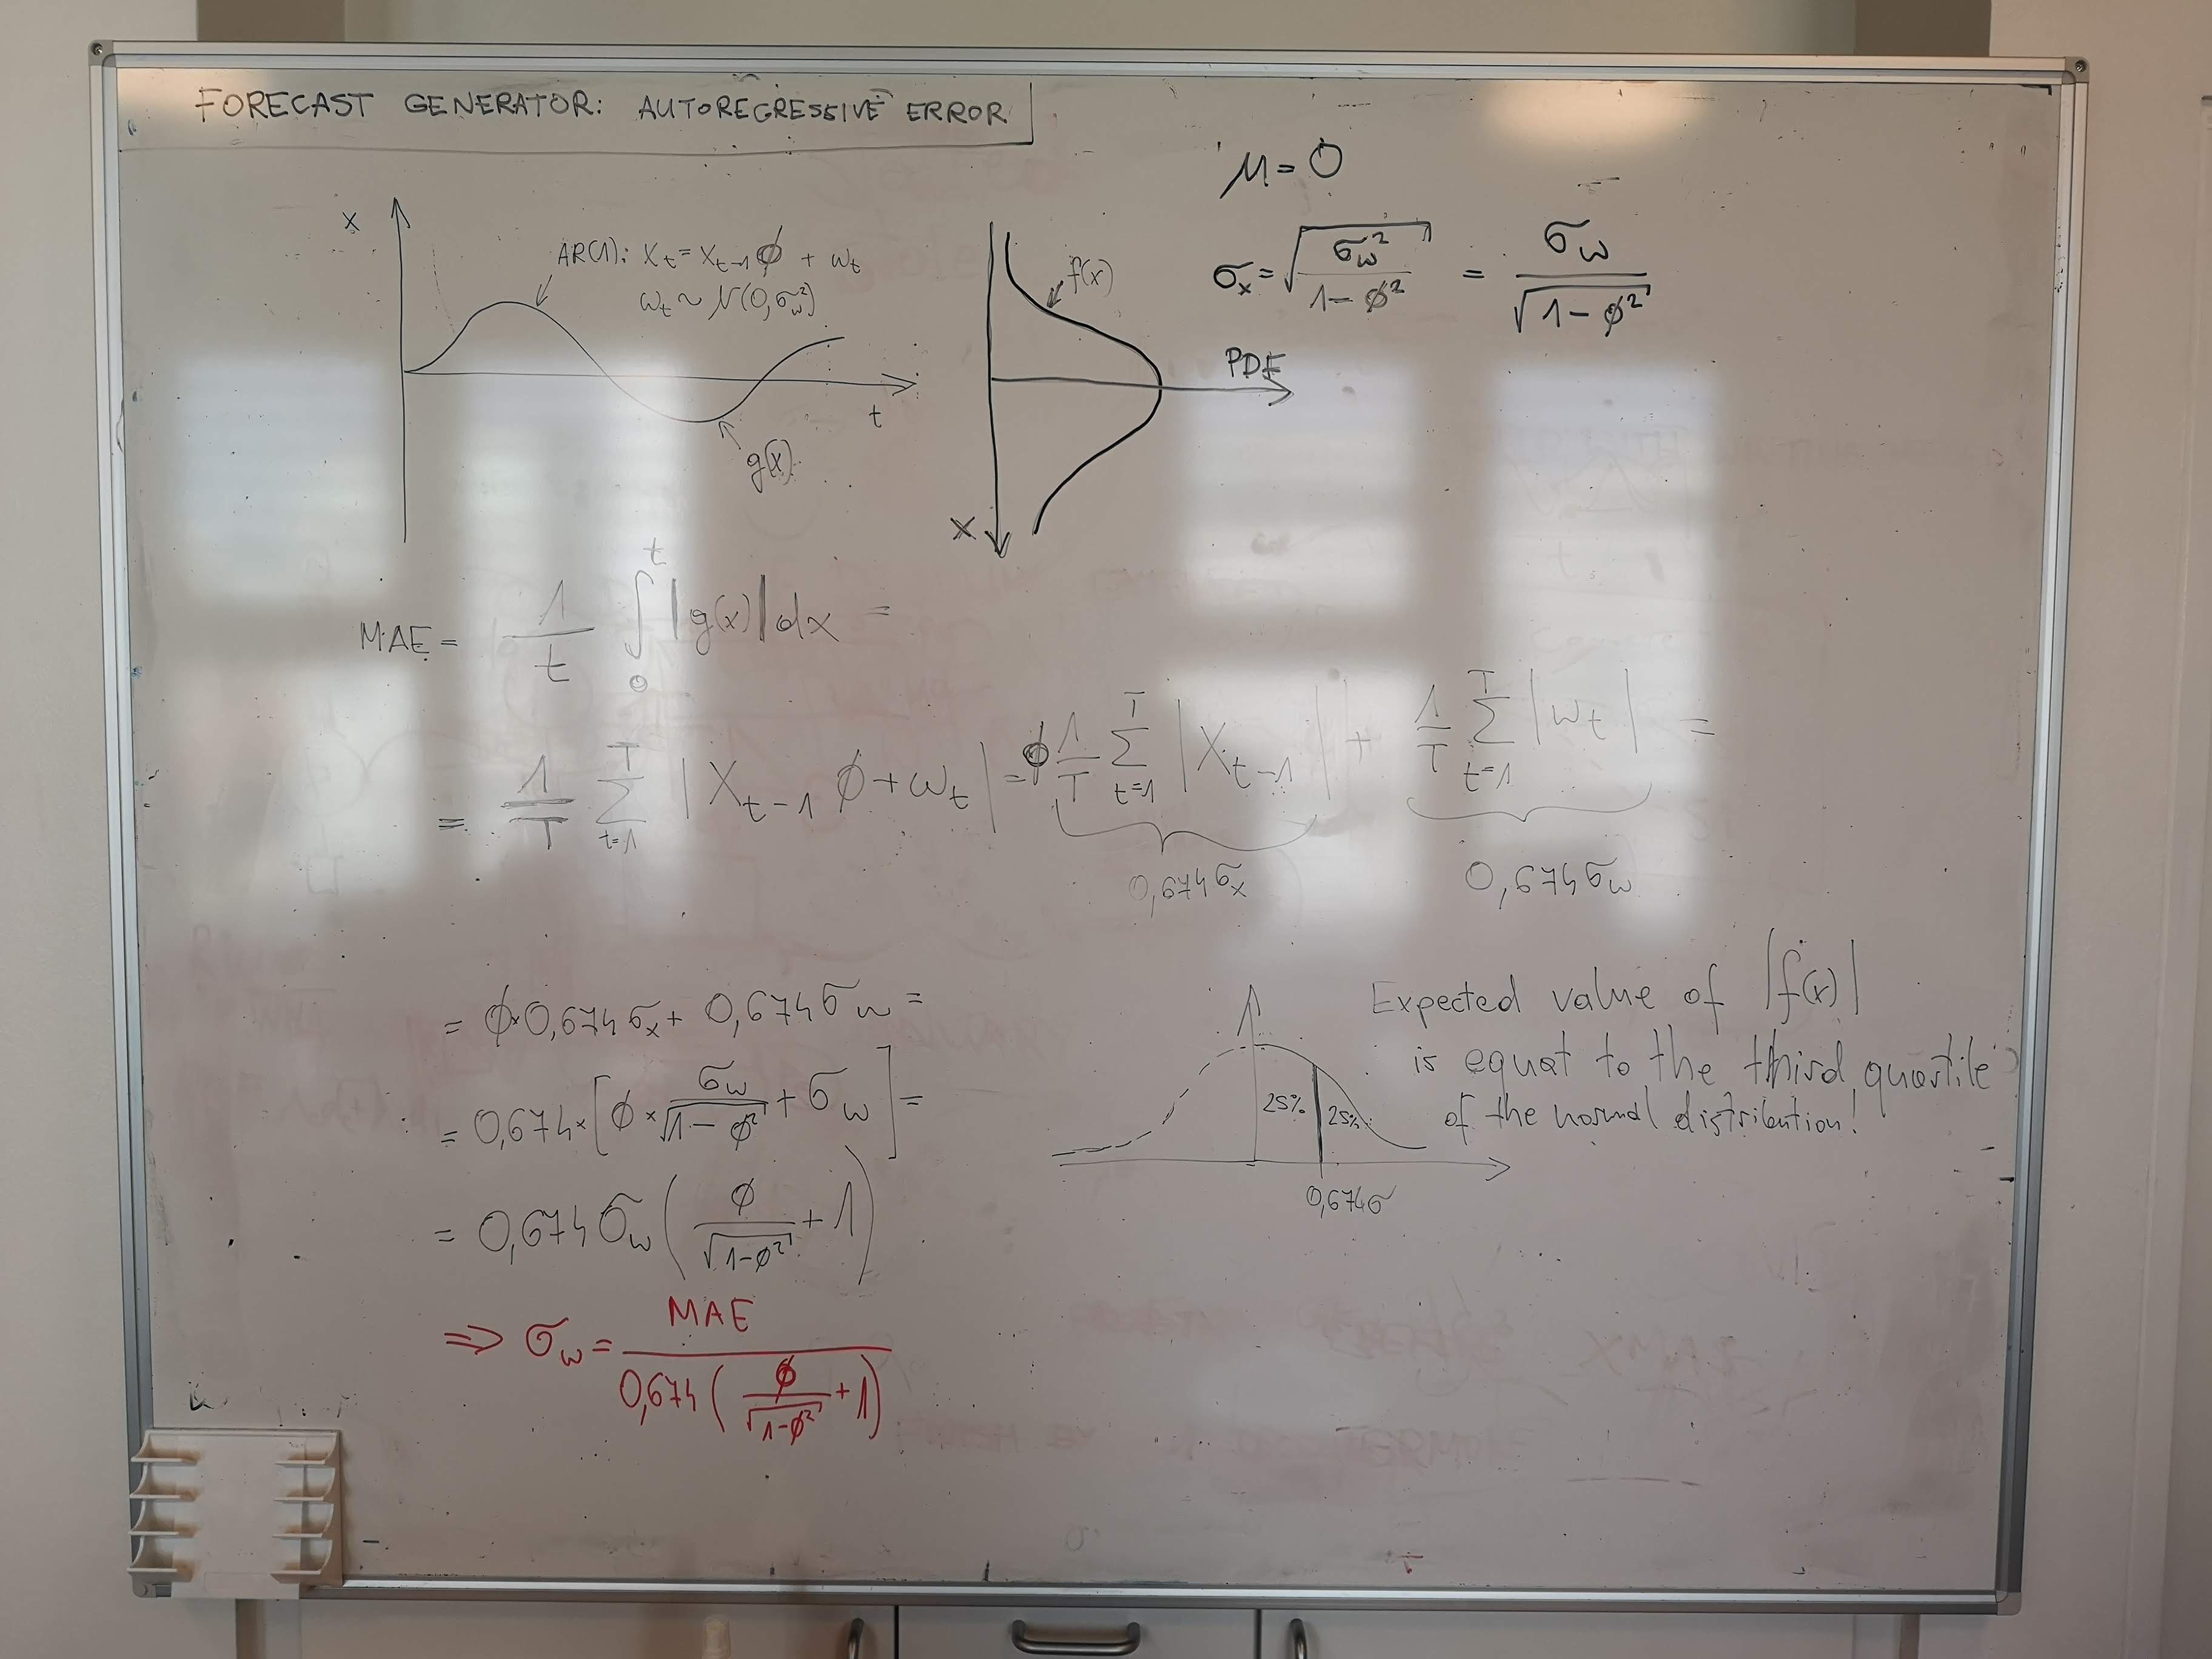 FORECAST GENERATOR: AUTOREGRESSIVE ERROR
μ = 0
x
AR(1): X_t = X_{t-1} ϕ + ω_t
ω_t ~ N(0, σ_w²)
t
g(x)
f(x)
PDF
x
σ_x = √(σ_w² / (1 - ϕ²)) = σ_w / √(1 - ϕ²)
MAE = 1/t ∫_0^t |g(x)| dx =
= 1/T Σ_{t=1}^T |X_{t-1} ϕ + ω_t| = ϕ 1/T Σ_{t=1}^T |X_{t-1}| + 1/T Σ_{t=1}^T |ω_t| =
0,674 σ_x
0,674 σ_w
= ϕ × 0,674 σ_x + 0,674 σ_w =
= 0,674 × [ϕ × σ_w / √(1 - ϕ²) + σ_w] =
= 0,674 σ_w (ϕ / √(1 - ϕ²) + 1)
⇒ σ_w = MAE / (0,674 (ϕ / √(1 - ϕ²) + 1))
Expected value of |f(x)|
is equal to the third quartile
of the normal distribution!
25% 25%
0,674σ